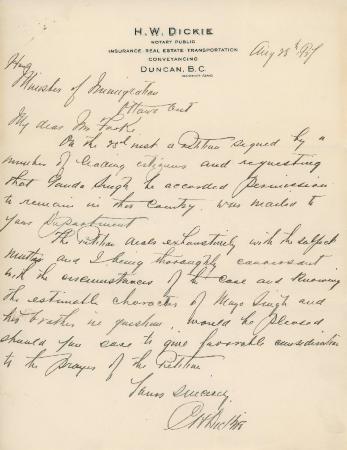 H. W. DICKIE
NOTARY PUBLIC
INSURANCE · REAL ESTATE · TRANSPORTATION
CONVEYANCING
DUNCAN, B.C.
Aug 28th
Hon
Minister of Immigration
Ottawa Ont
My dear Mr
On the inst a petition signed by a
number of leading citizens and requesting
that Ganda Singh be accorded permission
to remain in this country was mailed to
your Department
The petition deals exhaustively with the subject
matter and I being thoroughly conversant
with the circumstances of the case and knowing
the estimable character of Mayo Singh and
his brother in question, would be pleased
should you care to give favorable consideration
to the prayer of the Petition
Yours Sincerely
Dickie